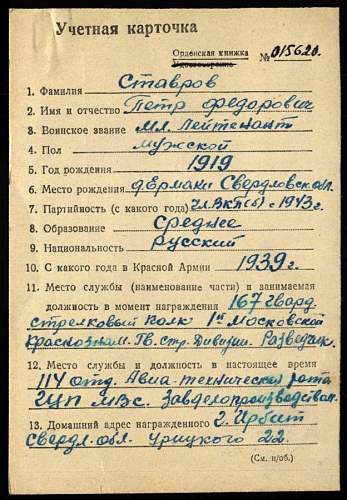 Учетная карточка
Орденская книжка
Удостоверение № 015620.
1. Фамилия Ставров
2. Имя и отчество Петр Федорович
3. Воинское звание Мл. Лейтенант
4. Пол мужской
5. Год рождения 1919
6. Место рождения д. Ермаки Свердловск. обл.
7. Партийность (с какого года) Чл. ВКП(б) с 1943 г.
8. Образование Среднее
9. Национальность Русский
10. С какого года в Красной Армии 1939 г.
11. Место службы (наименование части) и занимаемая
должность в момент награждения 167 гвард.
стрелковый полк 1й Московской
краснознам. Гв. стр. Дивизии. Разведчик.
12. Место службы и должность в настоящее время
114 отд. Авиа-техническая рота
ГЦП МВС. Завделопроизводством.
13. Домашний адрес награжденного г. Ирбит
Свердл. обл. Урицкого 22.
(См. н/об.)